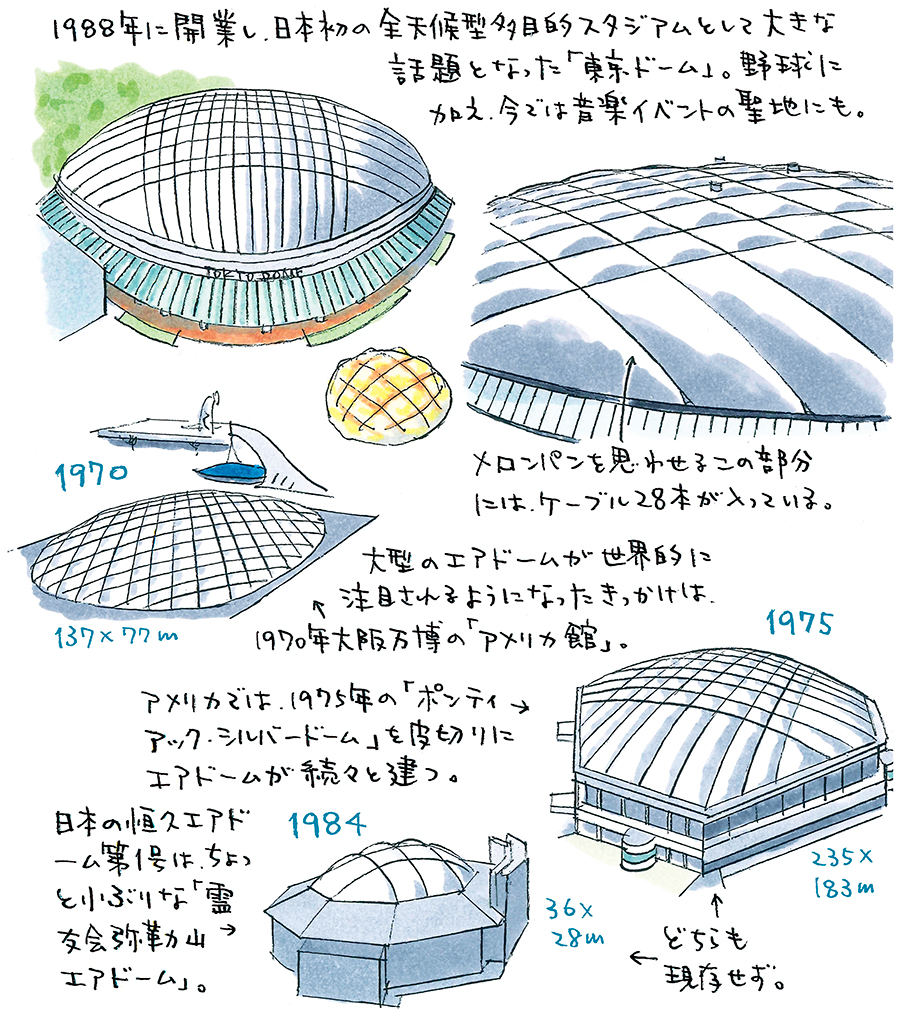 1988年に開業し、日本初の全天候型多目的スタジアムとして大きな
話題となった「東京ドーム」。野球に
加え、今では音楽イベントの聖地にも。
TOKYO DOME
メロンパンを思わせるこの部分
には、ケーブル28本が入っている。
1970
137×77m
大型のエアドームが世界的に
注目されるようになったきっかけは、
1970年大阪万博の「アメリカ館」。
1975
アメリカでは、1975年の「ポンティ
アック・シルバードーム」を皮切りに
エアドームが続々と建つ。
235×
183m
日本の恒久エアド
ーム第1号は、ちょっ
と小ぶりな「霊
友会弥勒山
エアドーム」。
1984
36×
28m
どちらも
現存せず。